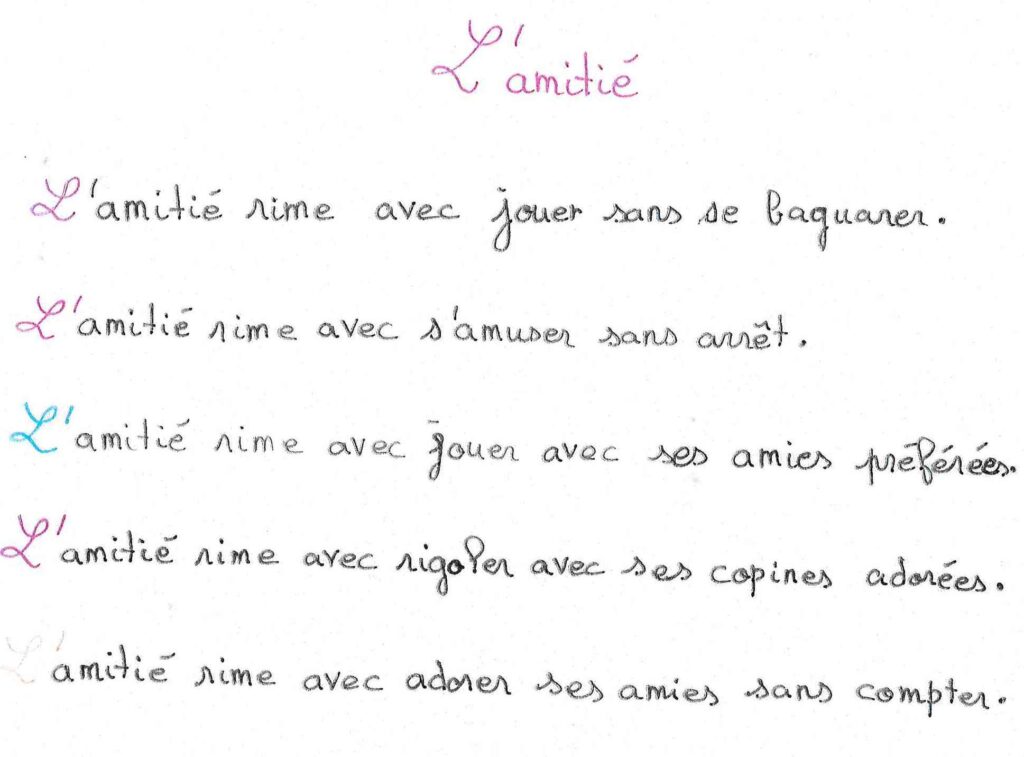 L'amitié
L'amitié rime avec jouer sans se baguarer.
L'amitié rime avec s'amuser sans arrêt.
L'amitié rime avec jouer avec ses amies préférées.
L'amitié rime avec rigoler avec ses copines adorées.
L'amitié rime avec adorer ses amies sans compter.